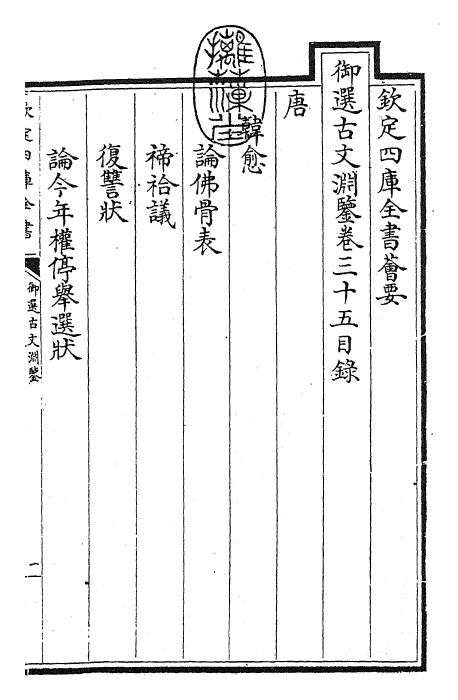 欽定四庫全書薈要
御選古文淵鑒卷三十五目錄
唐
韓愈
論佛骨表
禘祫議
復讐狀
論今年權停舉選狀
欽定四庫全書
御選古文淵鑒